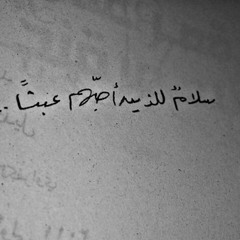 سلامٌ للذين أحبّهم عبثاً..